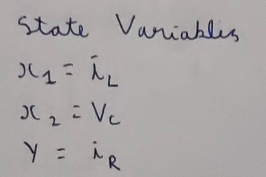 State Variables
x₁ = i_L
x₂ = V_C
Y = i_R